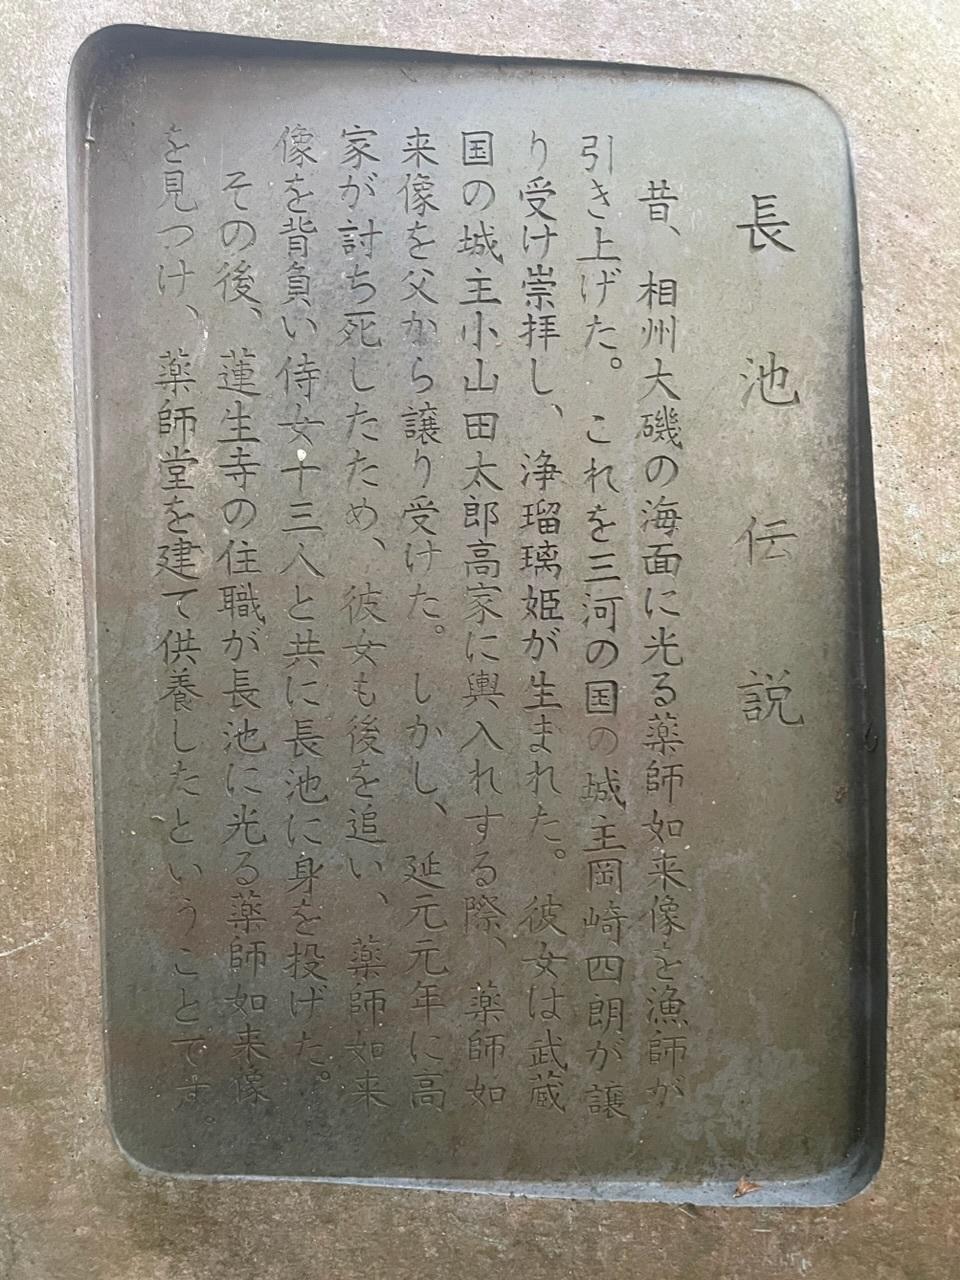 長池伝説
昔、相州大磯の海面に光る薬師如来像を漁師が
引き上げた。これを三河の国の城主岡崎四朗が譲
り受け崇拝し、浄瑠璃姫が生まれた。彼女は武蔵
国の城主小山田太郎高家に輿入れする際、薬師如
来像を父から譲り受けた。しかし、延元元年に高
家が討ち死したため、彼女も後を追い、薬師如来
像を背負い侍女十三人と共に長池に身を投げた。
その後、蓮生寺の住職が長池に光る薬師如来像
を見つけ、薬師堂を建て供養したということです。